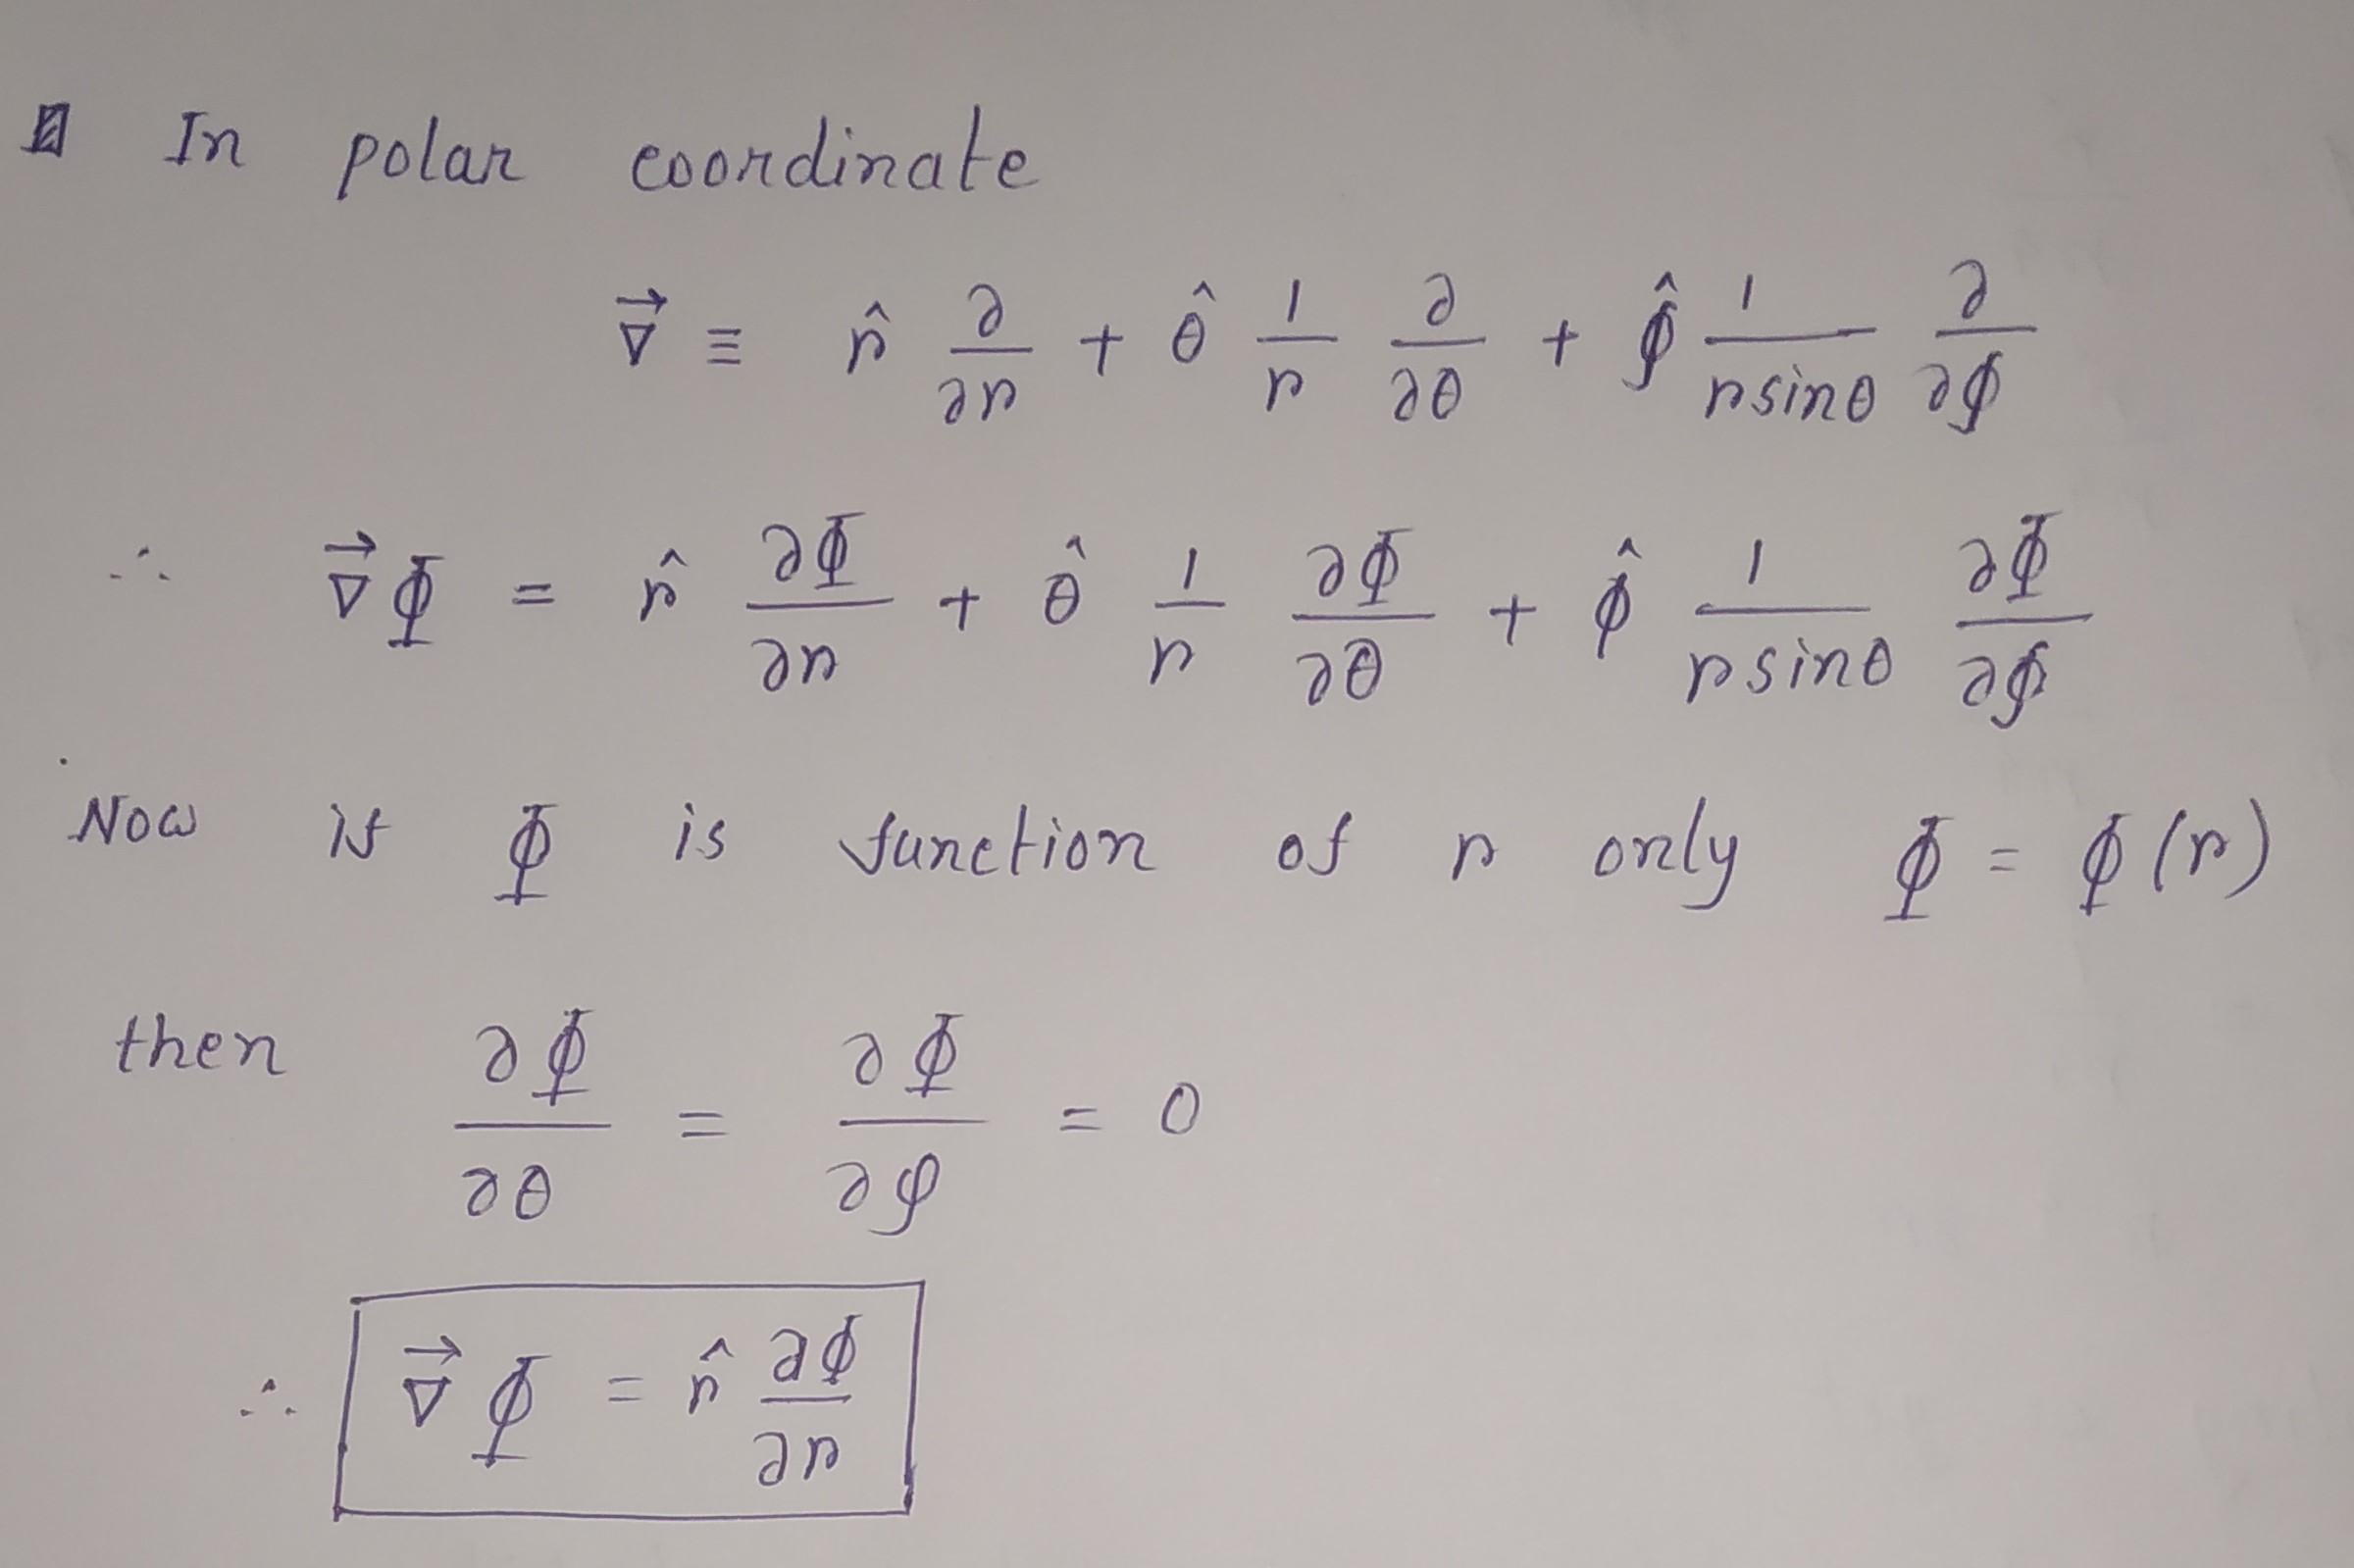 In polar coordinate
∇⃗ ≡ r̂ ∂/∂r + θ̂ 1/r ∂/∂θ + φ̂ 1/(r sinθ) ∂/∂φ
∴ ∇⃗Φ = r̂ ∂Φ/∂r + θ̂ 1/r ∂Φ/∂θ + φ̂ 1/(r sinθ) ∂Φ/∂φ
Now if Φ is function of r only Φ = Φ(r)
then ∂Φ/∂θ = ∂Φ/∂φ = 0
∴ ∇⃗Φ = r̂ ∂Φ/∂r